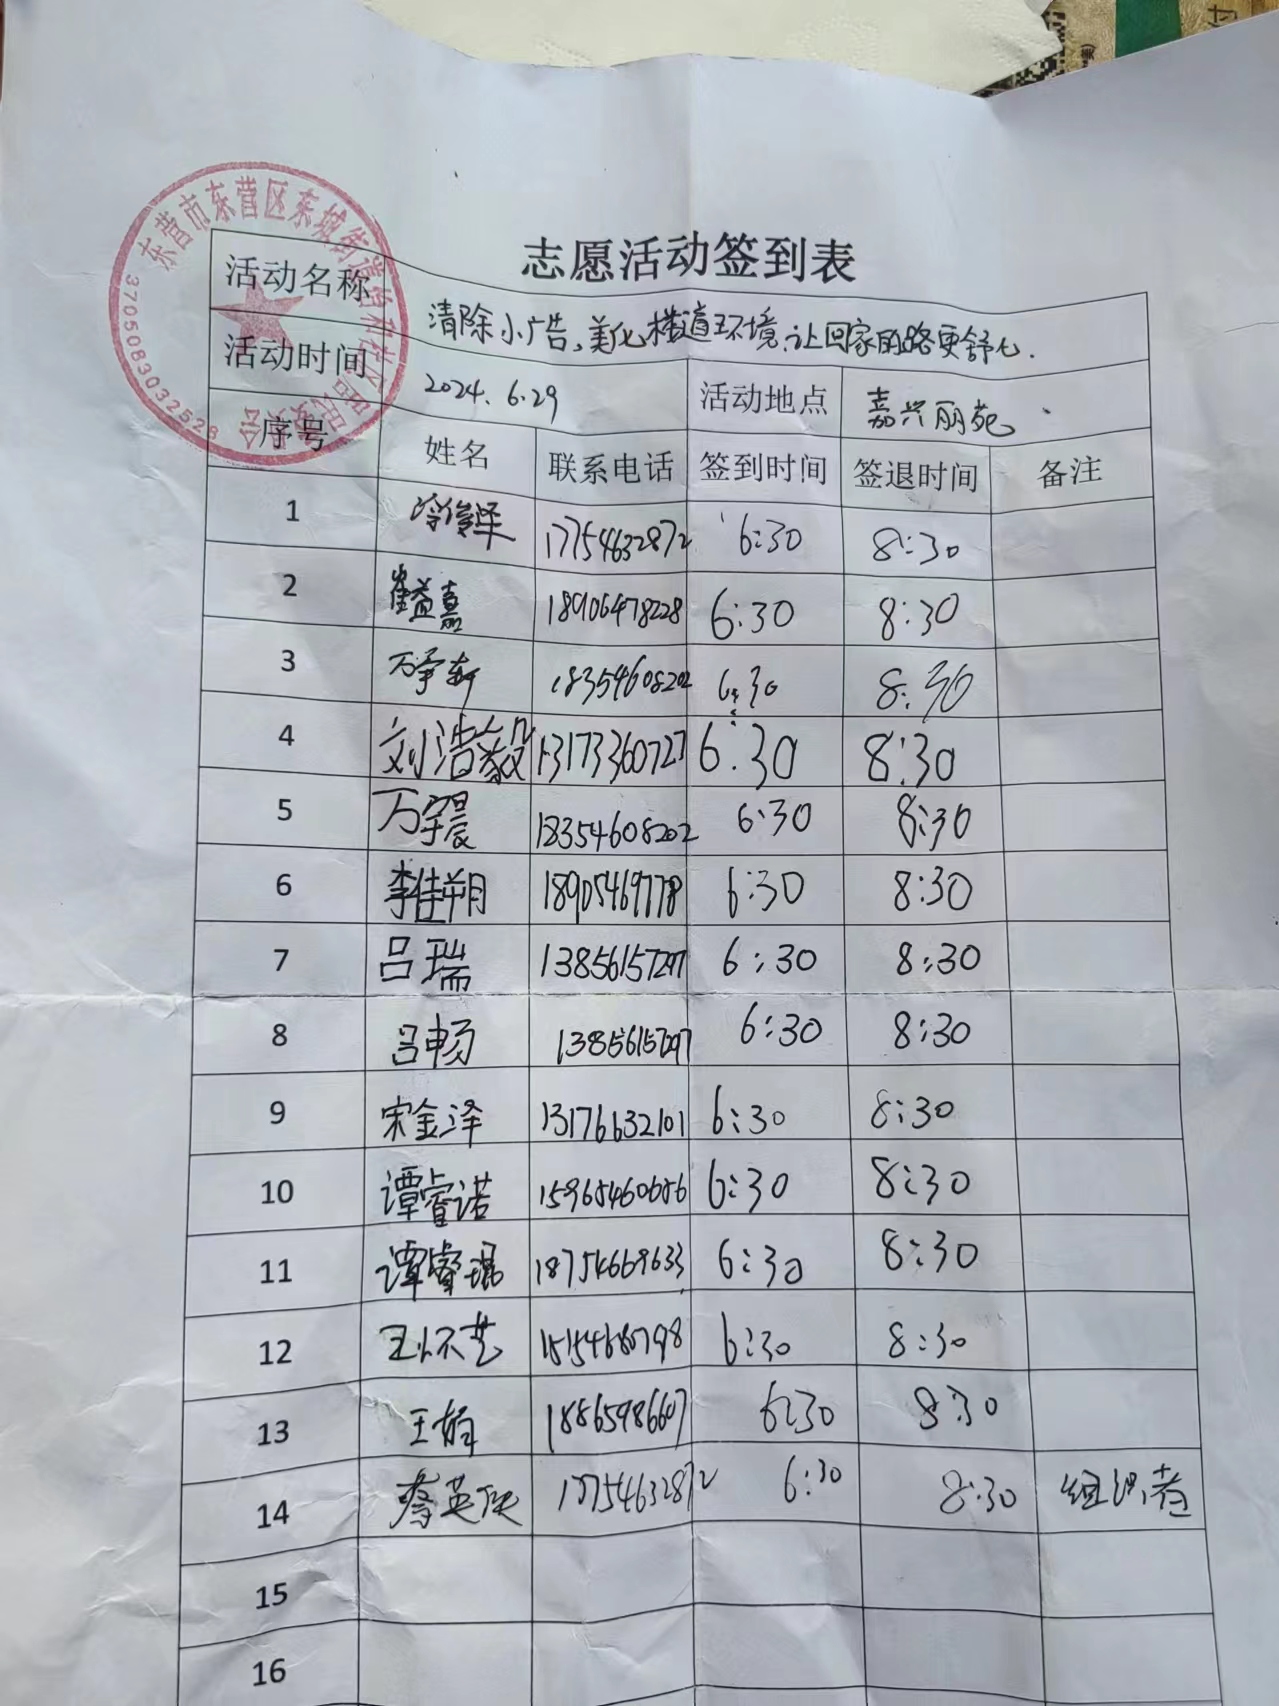 东营市东营区东城街道
3705083032528
志愿活动签到表
活动名称 清除小广告,美化楼道环境,让回家的路更舒心.
活动时间 2024.6.29 活动地点 嘉兴丽苑
序号 姓名 联系电话 签到时间 签退时间 备注
1 冷俊泽 17754632872 6:30 8:30
2 崔益嘉 18906478228 6:30 8:30
3 万宇轩 18354608202 6:30 8:30
4 刘浩毅 13173360727 6:30 8:30
5 万宇晨 18354608202 6:30 8:30
6 李佳朔 18905469778 6:30 8:30
7 吕瑞 13856157297 6:30 8:30
8 吕畅 13856157297 6:30 8:30
9 宋金泽 13176632101 6:30 8:30
10 谭睿诺 15965460656 6:30 8:30
11 谭睿琨 18754669633 6:30 8:30
12 王怀艺 15154680798 6:30 8:30
13 王娟 18865986607 6:30 8:30
14 英 17754632872 6:30 8:30 组织者
15
16